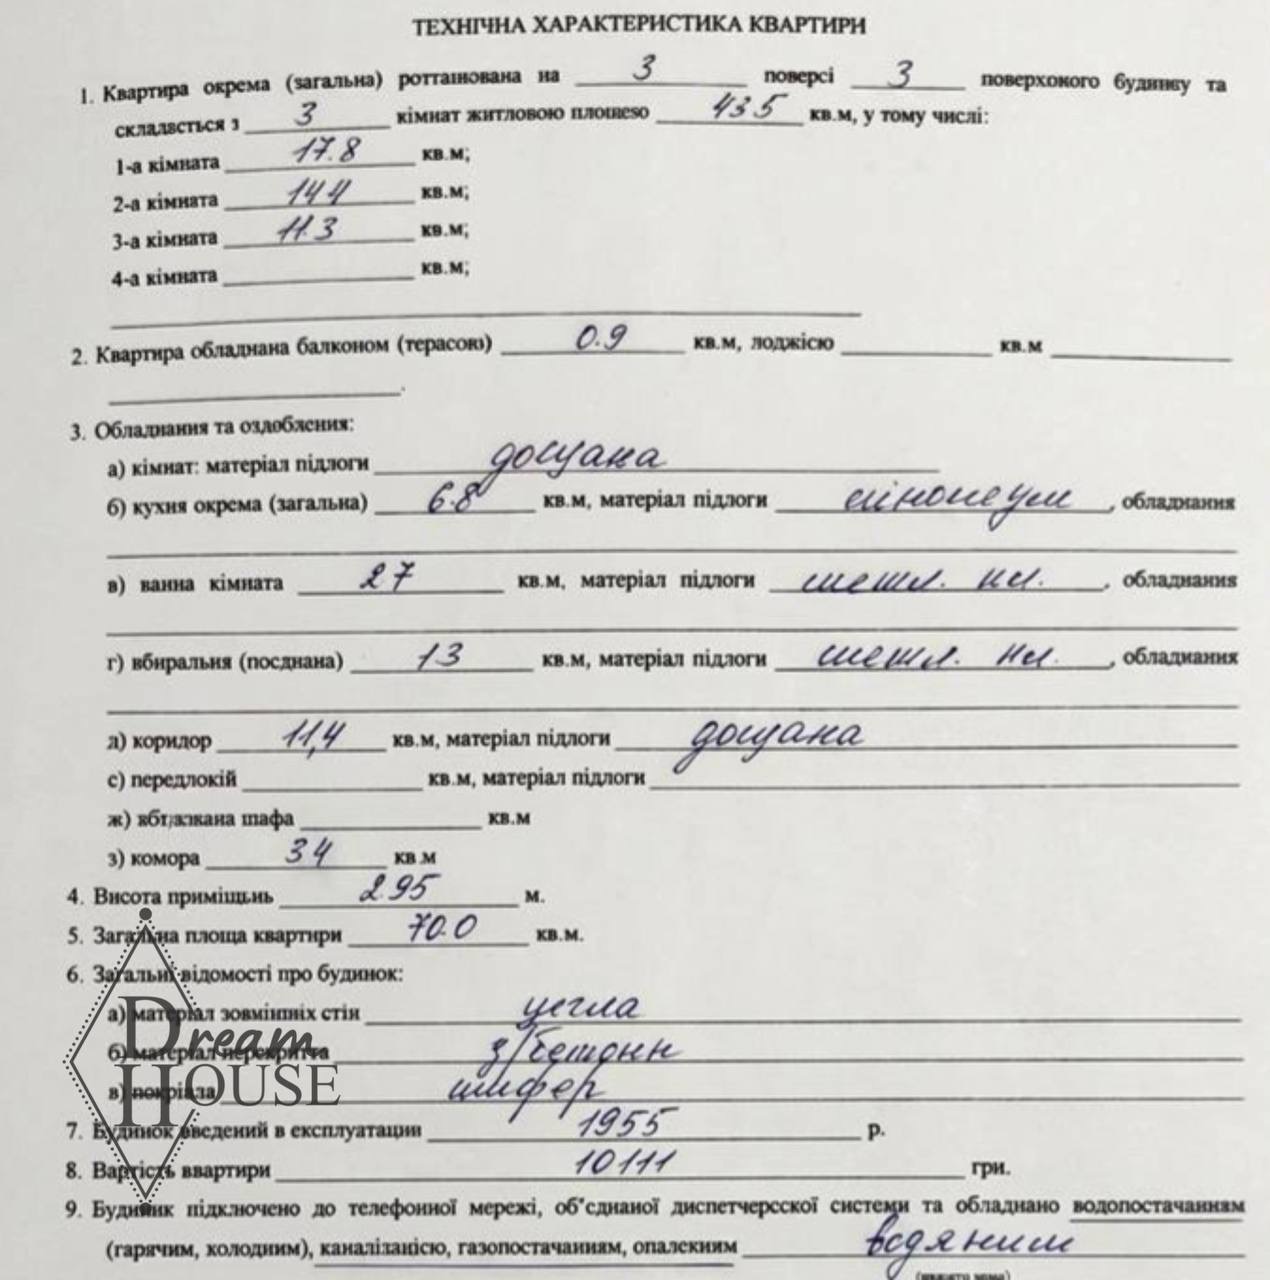 ТЕХНІЧНА ХАРАКТЕРИСТИКА КВАРТИРИ
1. Квартира окрема (загальна) розташована на 3 поверсі 3 поверхового будинку та
складається з 3 кімнат житловою площею 43.5 кв.м, у тому числі:
1-а кімната 17.8 кв.м;
2-а кімната 14.4 кв.м;
3-а кімната 11.3 кв.м;
4-а кімната кв.м;
2. Квартира обладнана балконом (терасою) 0.9 кв.м, лоджією кв.м
3. Обладнання та оздоблення:
а) кімнат: матеріал підлоги дощана
б) кухня окрема (загальна) 6.8 кв.м, матеріал підлоги лінолеум, обладнання
в) ванна кімната 2.7 кв.м, матеріал підлоги метл. пл., обладнання
г) вбиральня (поєднана) 1.3 кв.м, матеріал підлоги метл. пл., обладнання
д) коридор 11,4 кв.м, матеріал підлоги дощана
є) передпокій кв.м, матеріал підлоги
ж) вбудована шафа кв.м
з) комора 3.4 кв.м
4. Висота приміщень 2.95 м.
5. Загальна площа квартири 70.0 кв.м.
6. Загальні відомості про будинок:
а) матеріал зовнішніх стін цегла
б) матеріал перекриття з/бетонн
в) покрівля шифер
7. Будинок введений в експлуатации 1955 р.
8. Вартість квартири 10111 грн.
9. Будинок підключено до телефонної мережі, об'єднаної диспетчерської системи та обладнано водопостачанням
(гарячим, холодним), каналізацією, газопостачанням, опаленням водяним
Dream
HOUSE